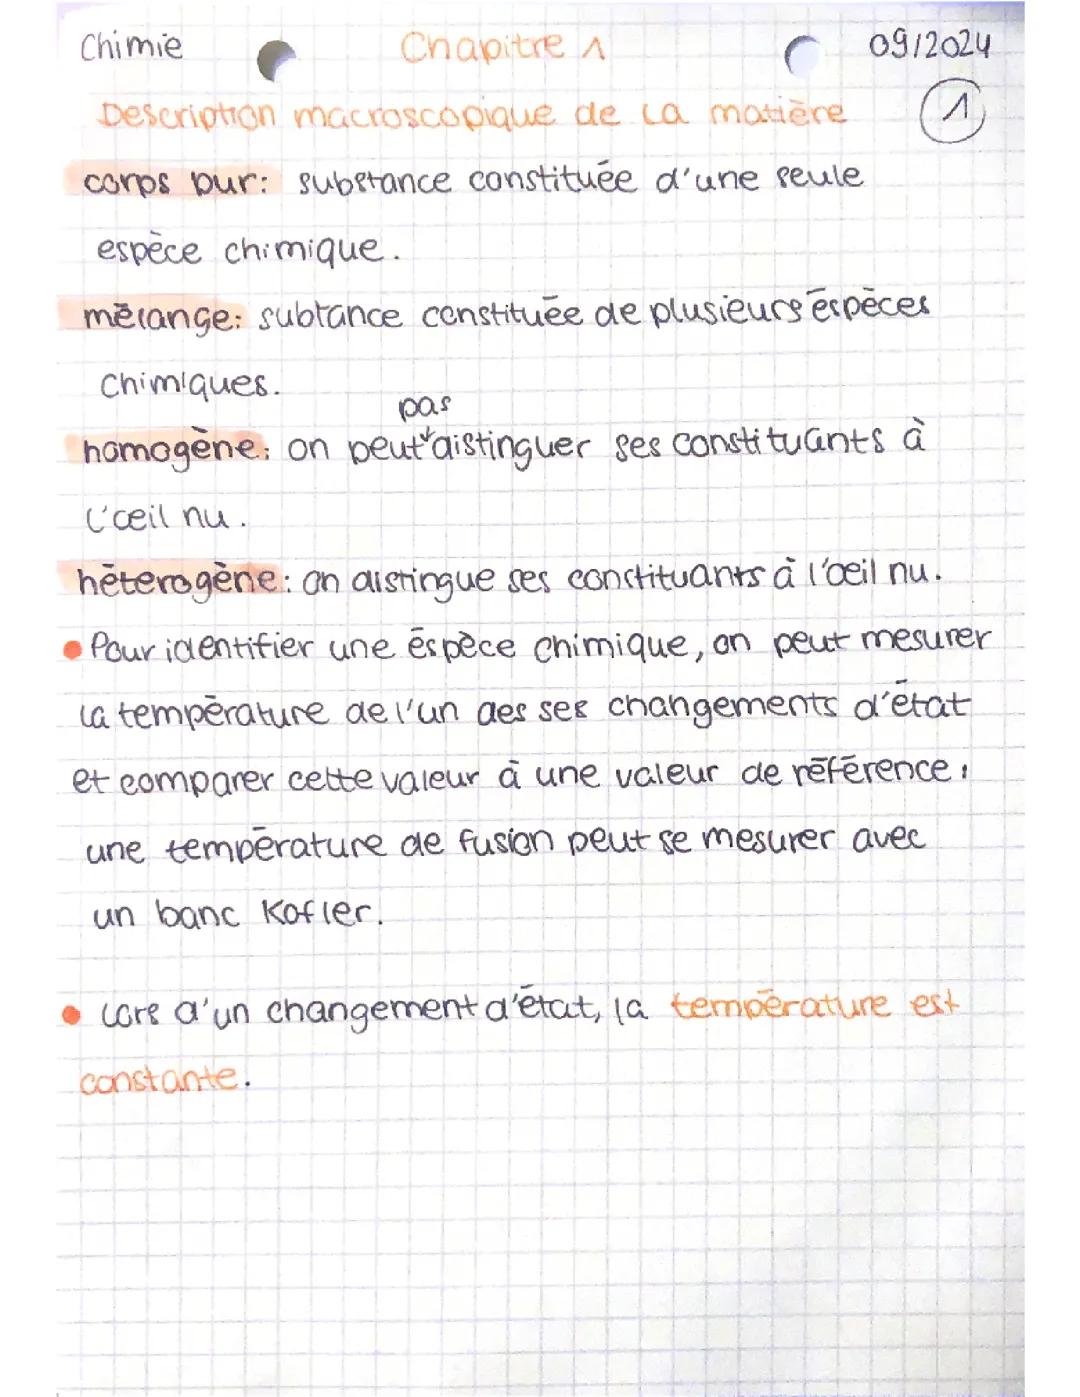 Chimie Chapitre 1 09/2024
Description macroscopique de la matière 1
corps pur: substance constituée d'une seule
espèce chimique.
mélange: subtance constituée de plusieurs éspèces
chimiques.
pas
homogène: on peut distinguer ses constituants à
l'œil nu.
hétérogène: on distingue ses constituants à l'œil nu.
• Pour identifier une éspèce chimique, on peut mesurer
la température de l'un des ses changements d'état
et comparer cette valeur à une valeur de référence:
une température de fusion peut se mesurer avec
un banc Kofler.
• Lors d'un changement d'état, la température est
constante.